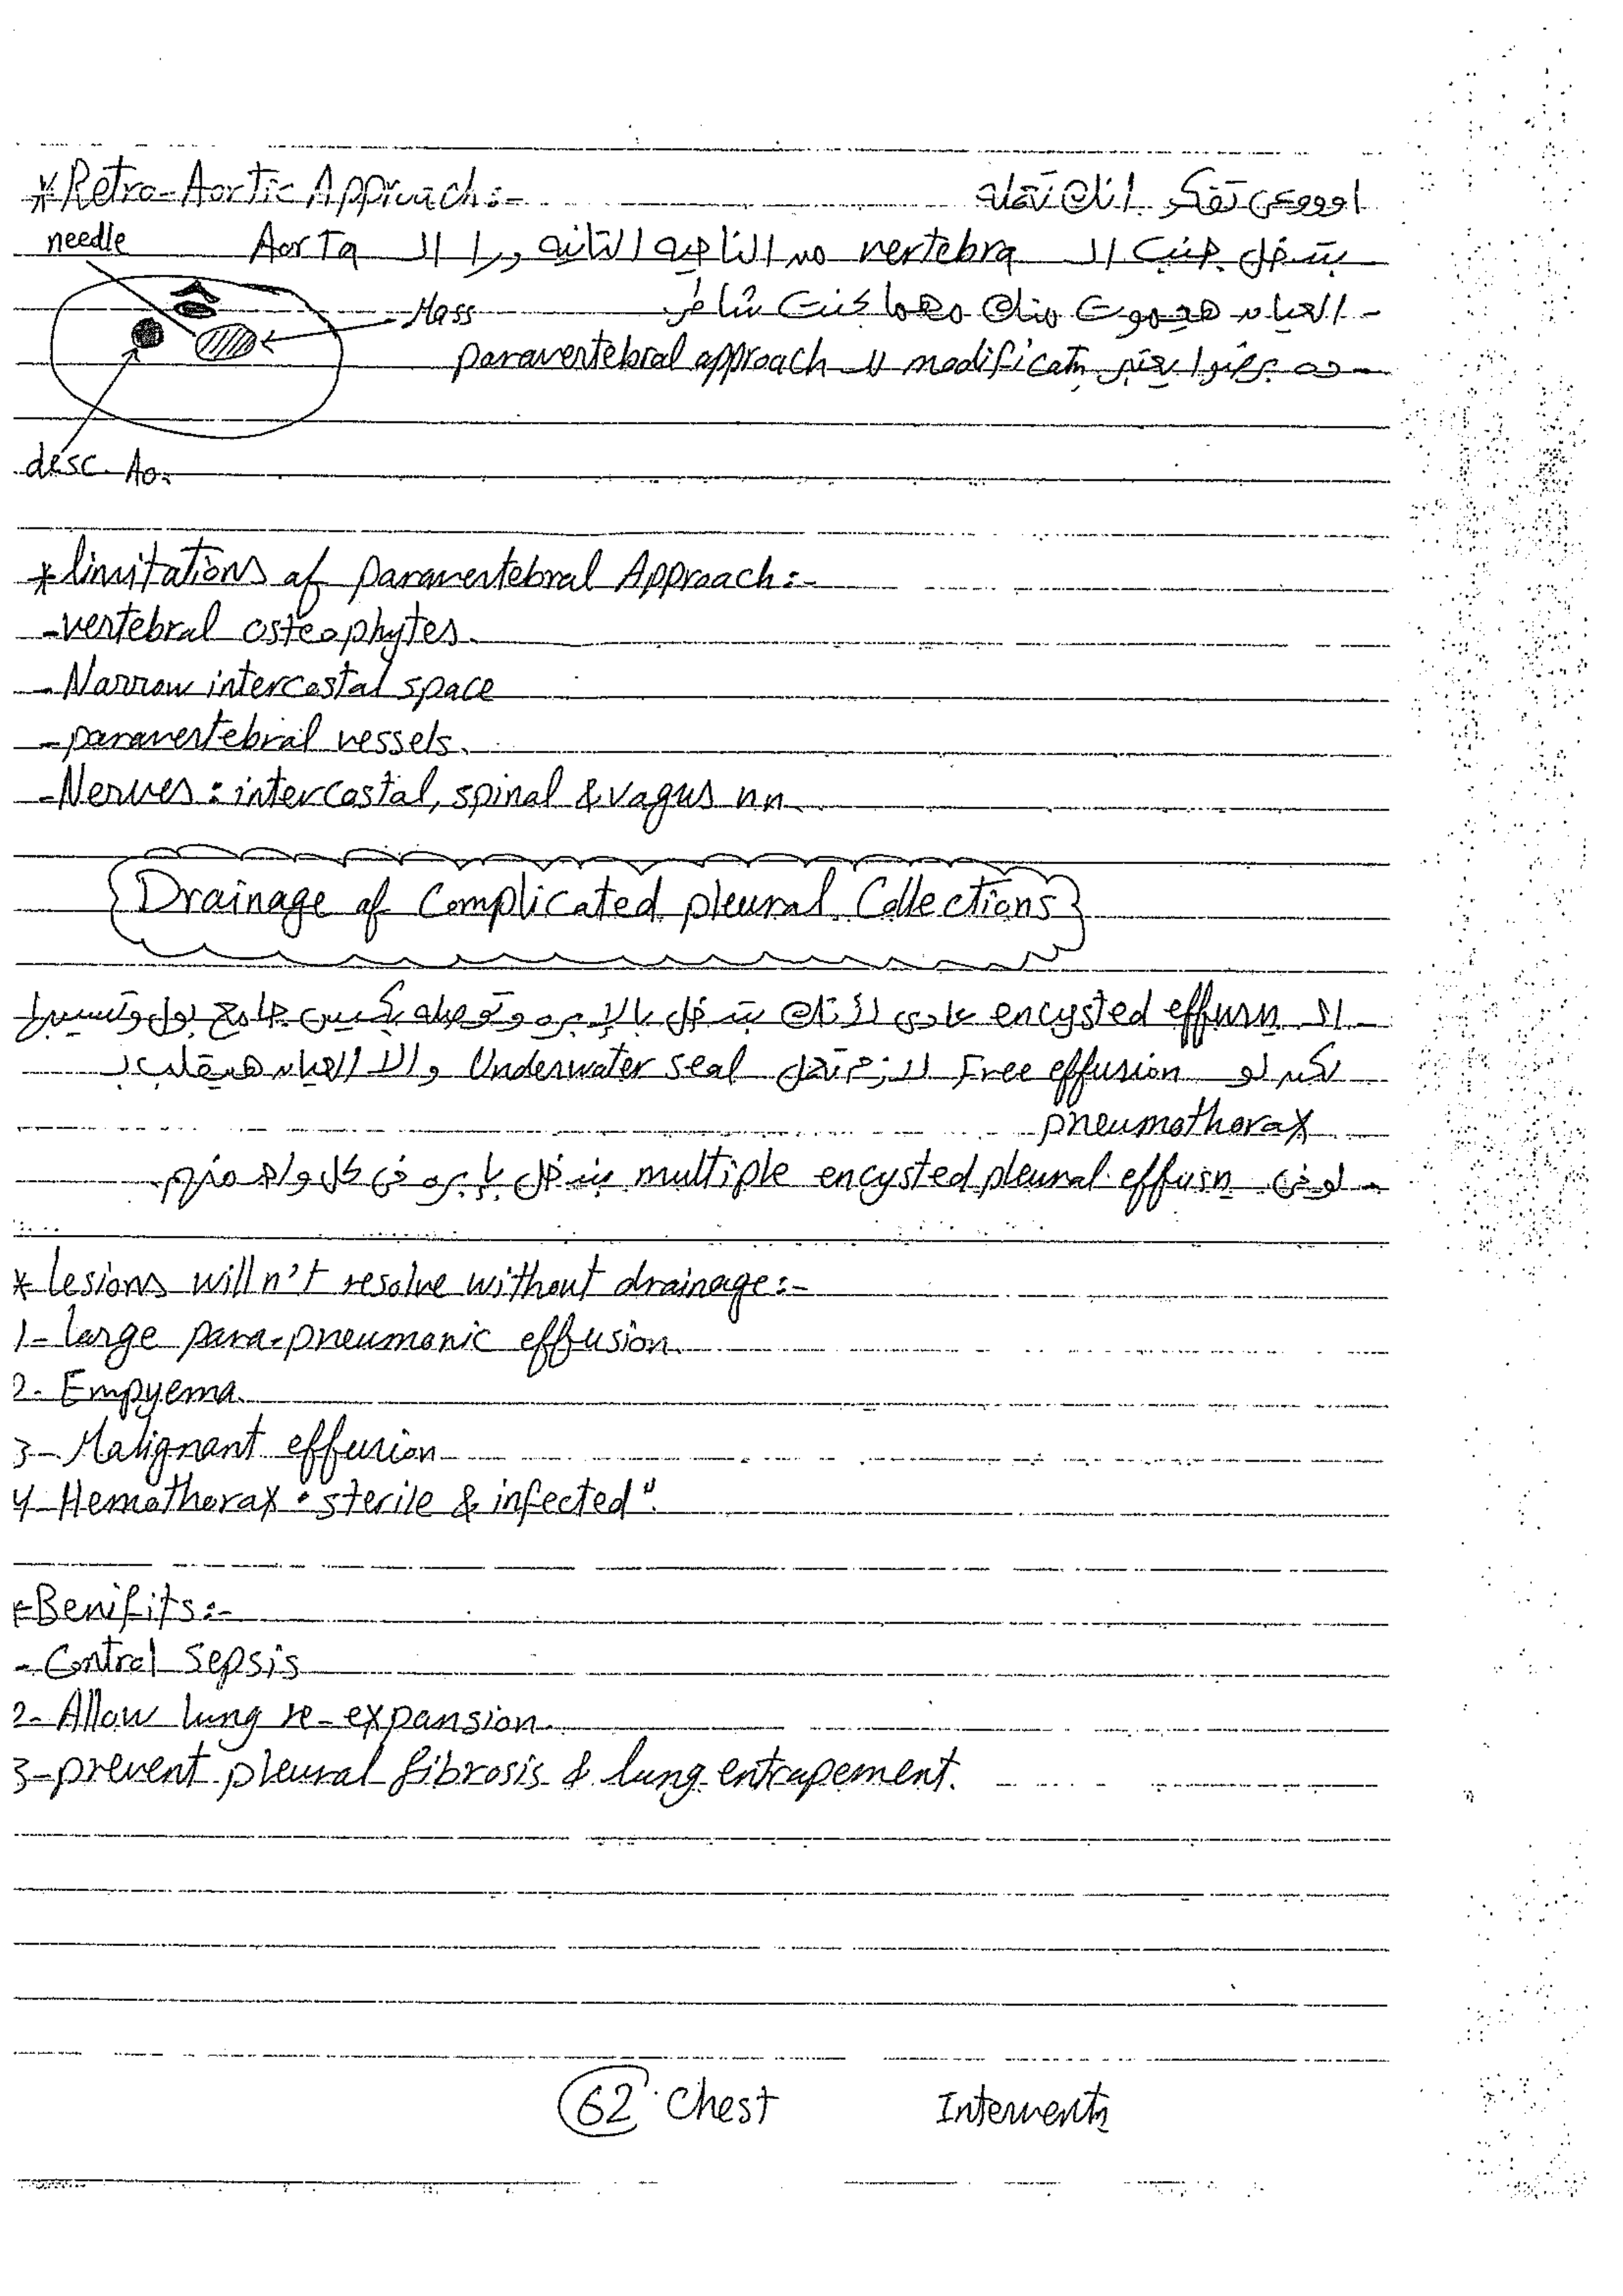 * Retro-Aortic Approach:- اوووعى تفكر انك تعمله
needle
بتدخل جنب الـ vertebra من الناحيه التانيه ورا الـ Aorta
Mass
- العيان هيموت منك مهما كنت شاطر
- ده برضوا يعتبر modificatn للـ paravertebral approach
desc. Ao.
* limitations of paravertebral Approach:-
- vertebral osteophytes.
- Narrow intercostal space
- paravertebral vessels.
- Nerves: intercostal, spinal & vagus nn.
Drainage of Complicated pleural Collections
- الـ encysted effusn عادى انك بتدخل بالإبره وتوصله بكيس جامع بول وتسيبها
لكن لو Free effusion لازم تعمل Underwater seal والا العيان هيقلب بـ
pneumothorax
- لو فى multiple encysted pleural effusn بندخل بإبره فى كل واحد منهم.
* lesions will n't resolve without drainage:-
1- large para-pneumonic effusion.
2- Empyema.
3- Malignant effusion
4- Hemothorax "sterile & infected".
* Benifits:-
- Control sepsis
2- Allow lung re-expansion.
3- prevent pleural fibrosis & lung entrapement.
62 Chest Interventn